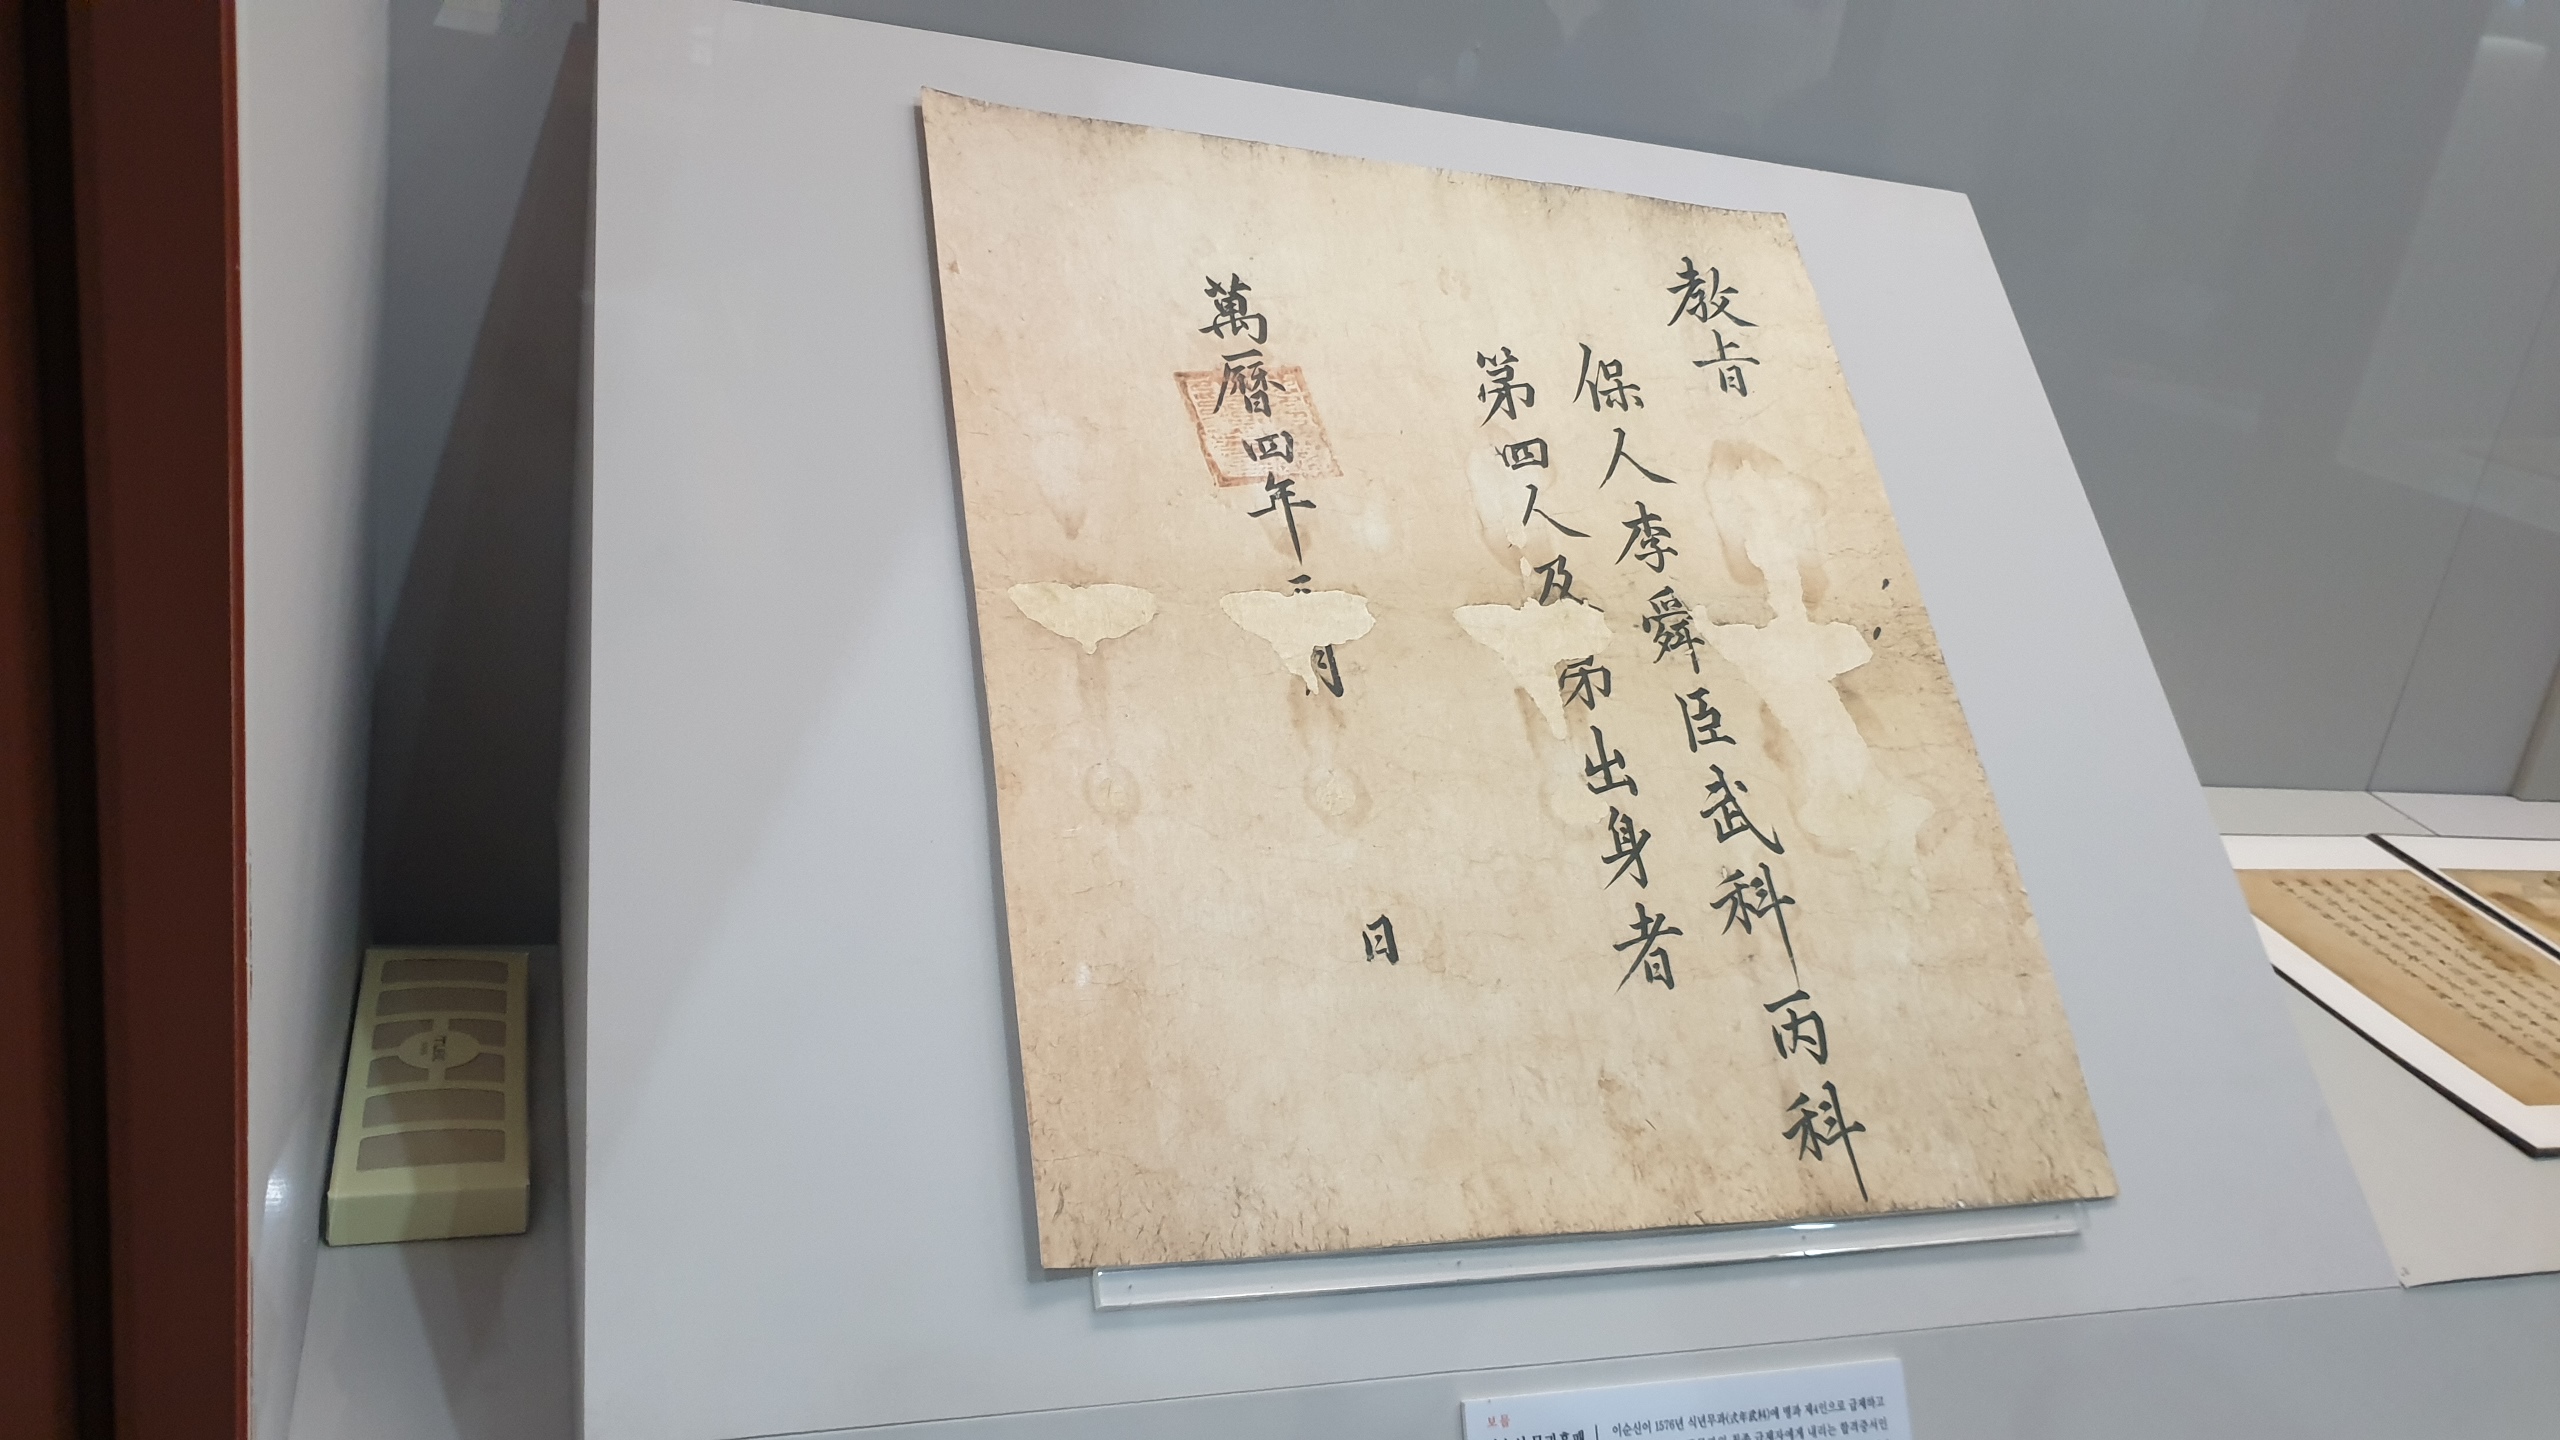 教旨
保人李舜臣武科丙科
第四人及第出身者
萬曆四年三月 日
보물
이순신이 1576년 식년무과(式年武科)에 병과 제4인으로 급제하고
급제자에게 내리는 합격증서인